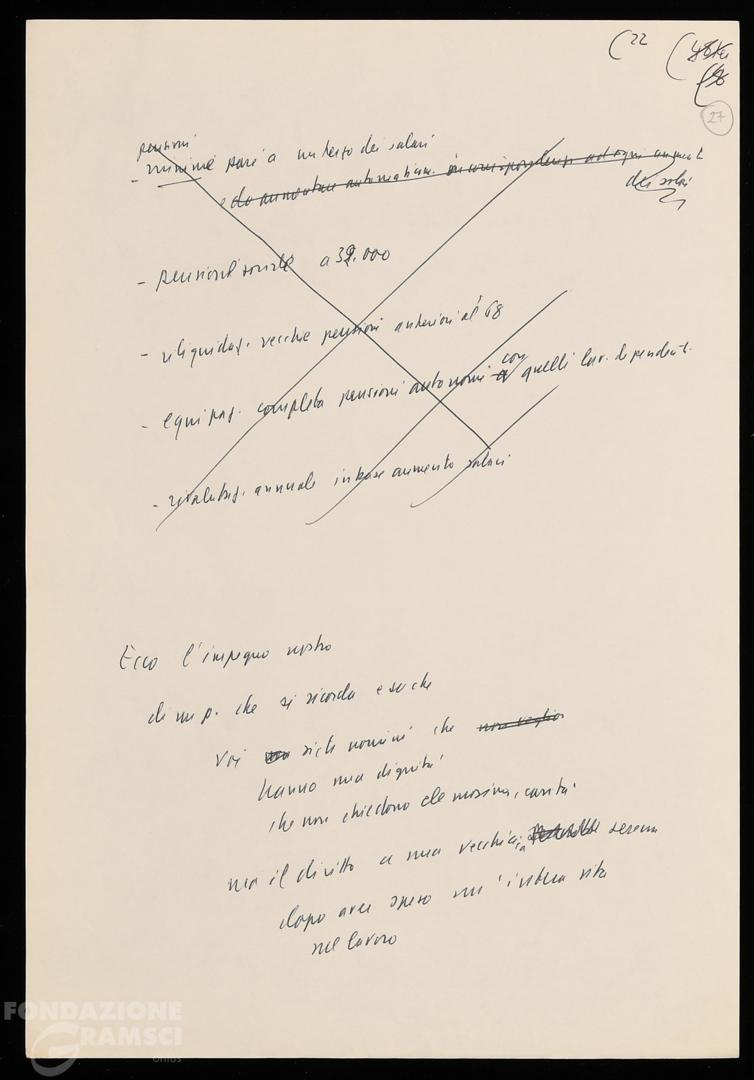 (22
27
pensioni
- minime pari a un terzo dei salari
e da aumentare automaticam. in corrispondenza ad ogni aument
dei salari
- pensione sociale a 32.000
- riliquidaz. vecchie pensioni anteriori al '68
- equipar. completa pensioni autonomi con quelli lav. dipendenti.
- rivalutaz. annuale in base aumento salari
Ecco l'impegno nostro
di un p. che si ricorda e sa che
Voi siete uomini che
hanno una dignità
che non chiedono elemosina, carità
ma il diritto a una vecchiaia serena
dopo aver speso un'intera vita
nel lavoro
FONDAZIONE
GRAMSCI
onlus